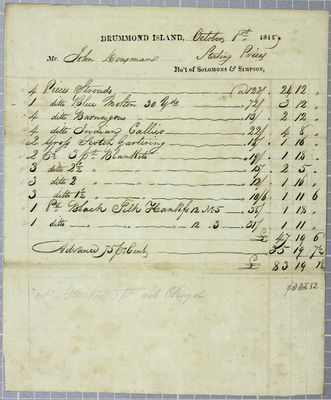 DRUMMOND ISLAND, October, 1st 181
Mr. John Sterling Prices
Bo't of SOLOMONS & SIMPSON,
4 Pieces Strouds 24 12 "
1 ditto Blue Molton 30 Yds 72/ 3 12 "
4 ditto 2 12 "
4 ditto Indian Callico 22/ 4 8 "
2 Gross Scotch Gartering 18/ 1 16 "
2 3 pt Blankets 1 18 "
3 ditto 2½ " " 15/ 2 5 "
3 ditto 2 " " 12/ 1 16 "
3 ditto 1½ " " 10/6 1 11 6
1 Ps Black Silk Hankfs 12 No 5 1 18 "
1 ditto " " " 12 " 3 31/ 1 11 "
£ 47 19 6
Advance 75 pr Cent 35 19 7½
£ 83 19 1½
not